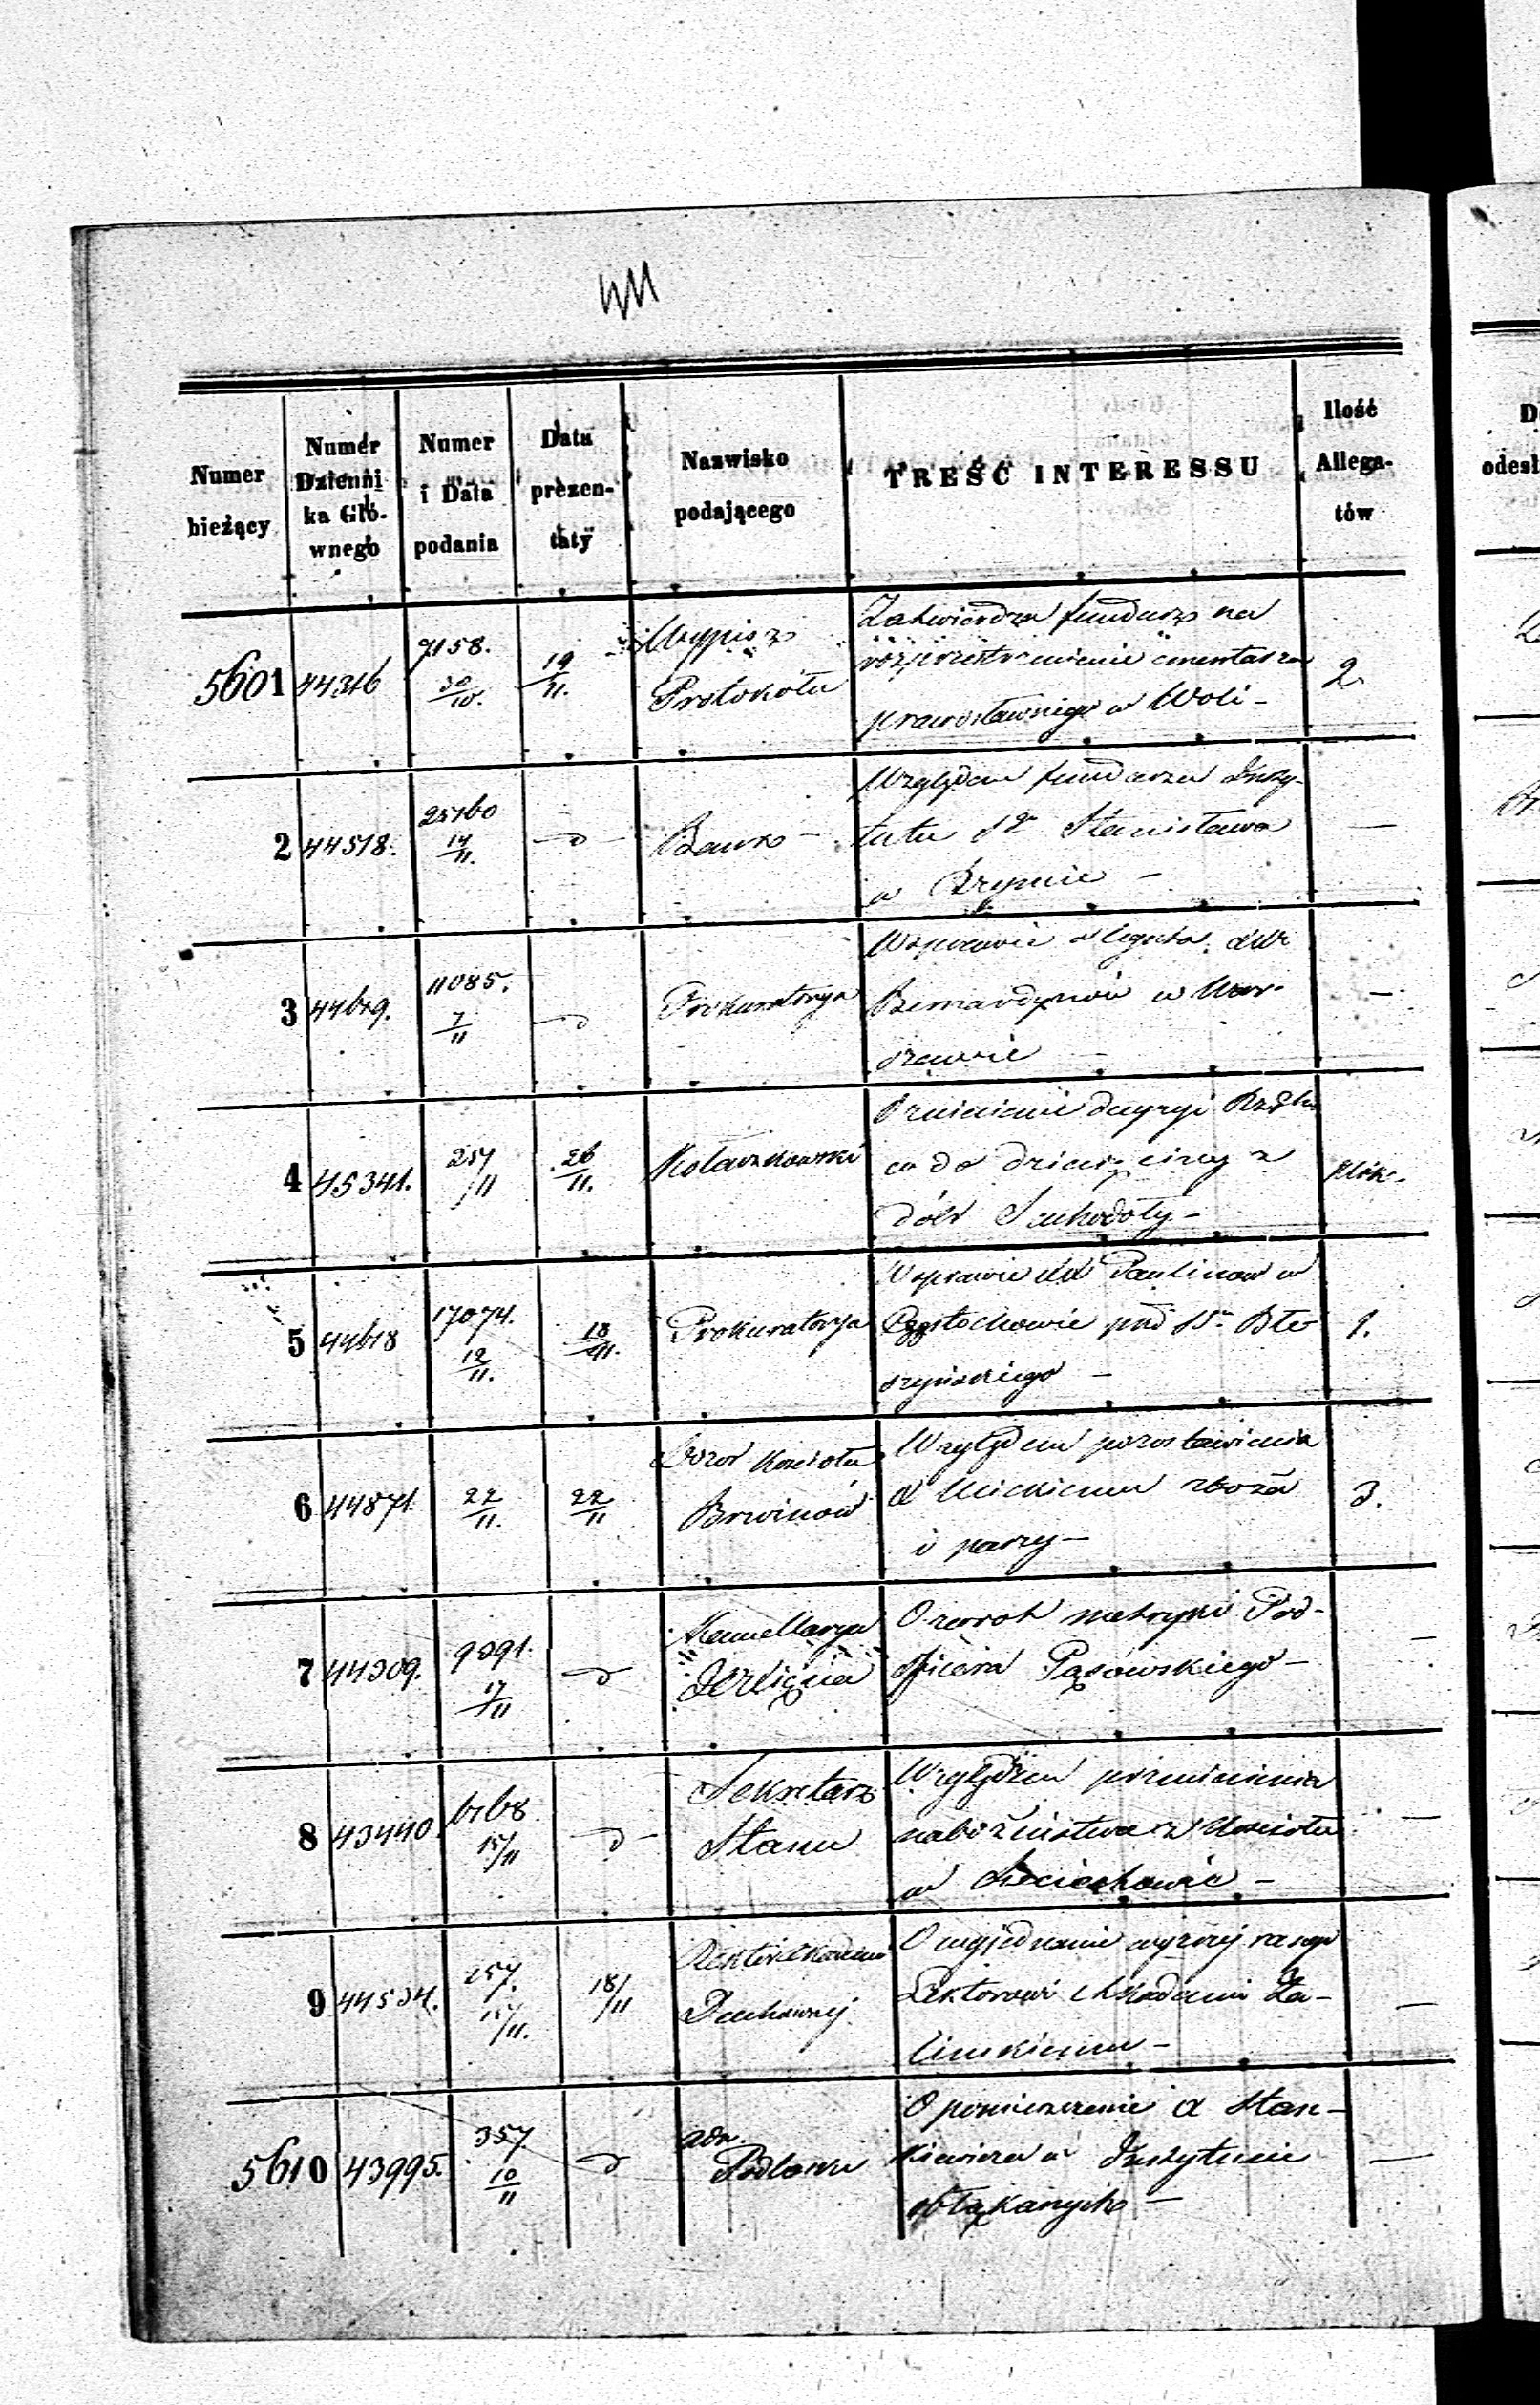 Numer bieżący
Numer Dzienni ka Głó- wnego
Numer i Data podania
Data prezen- taty
Nazwisko podającego
TREŚĆ INTERESSU
Ilość Allega- tów
5601 44316 7158. 30/10. 19/11. Wypis z Protokołu
Zatwierdza fundusz na
rozprzestrzenienie cmentarza
prawosławnego w Woli -
2
2 44518. 14/11. Bank -
Względem funduszu Insty-
tutu Sgo Stanisława
w Rzymie -
—
3 11085. 7/11 Prokuratorya
W sprawie o legata XX
Bernardynów w War-
szawie -
—
4 45341. 257 /11 26/11. Kołaczkowski
co do dziesięciny z
dóbr Suchodoły -
5 44618 17074. 12/11. 18/11. Prokuratorya
W sprawie XX Paulinów w
Częstochowie
1.
6 44871. 22/11. 22/11 Dozór Kościoła Brwinów
Względem pozostawienia
X zboża
i paszy -
3.
7 44309. 9391. 17/11 Kancellarya
O zwrot metryki Pod-
oficera Pąsowskiego -
—
8 43440. 15/11 Sekretarz Stanu
Względem przeniesienia
nabożeństwa z Kościoła
w Sieciechowie -
—
9 44534. 257. 15/11. 18/11 Rektor Akademii Duchownej
O wyjednanie
Lektorowi Akademii Za-
limskiemu -
—
5610 43995. 357. 10/11 adm. Podlaski
O pomieszczenie X Stan-
kiewicza w Instytucie
obłąkanych -
—
D
odesł